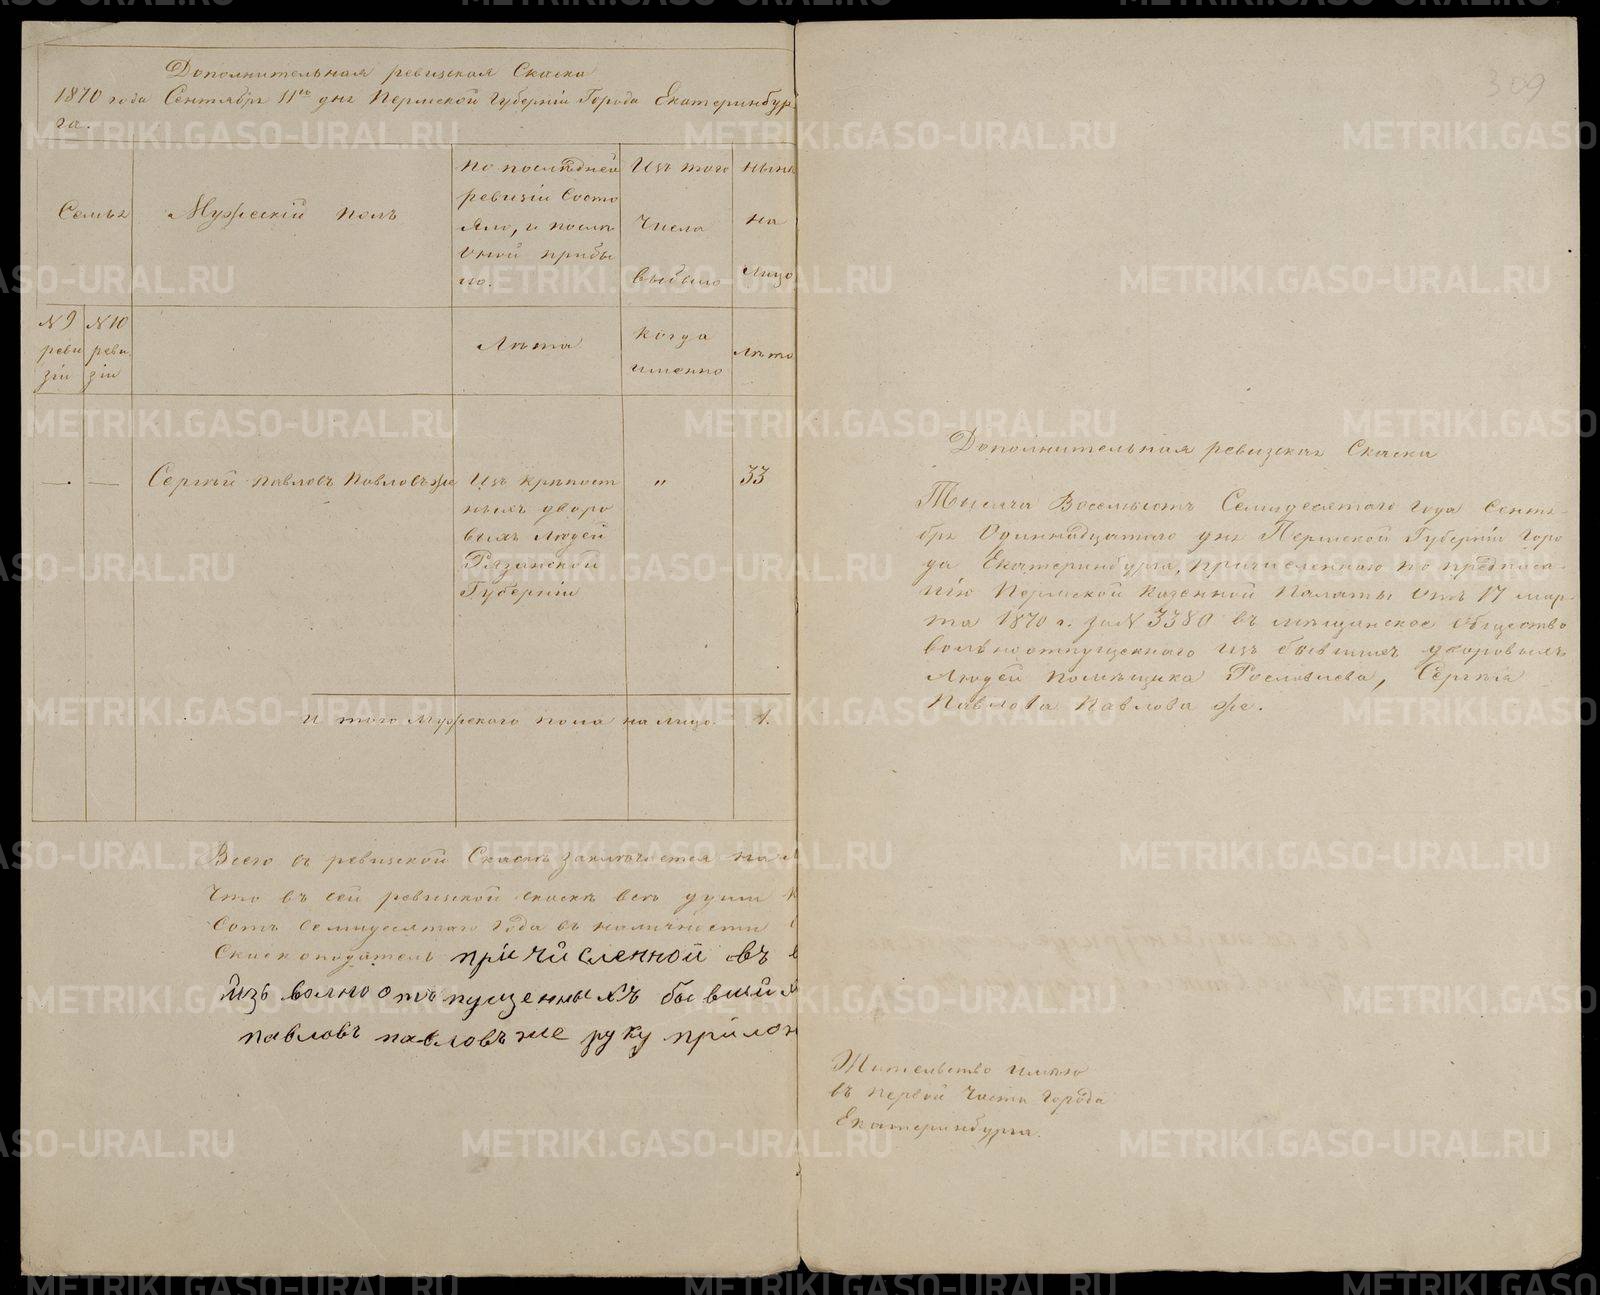 Дополнительная ревизская Скаска
1870 года Сентября 11го дня Пермской Губерніи Города Екатеринбур
га.
Семья
Мужескій полъ
По последней
ревизіи состо
яло, и после
оной прибы
ло.
Изъ того
числа
выбыло
ныне
на
лицо
№ 9
реви
зіи
№ 10
реви
зіи
Лета
когда
именно
Лета
Сергей Павловъ Павловъ же
Изъ крепост
ныхъ дворо
выхъ людей
Рязанской
Губерніи
"
33
и того мужескаго пола на лицо.
1.
Всего въ ревизской Скаске заключается на
Что въ сей ревизской скаске все души
сотъ семидесятаго года въ наличности
Скаскоподатель причисленной въ
изъ волноотпущенныхъ бывший
павловъ павловъ же руку прилож
309
Дополнительная ревизская Скаска
Тысяча Восемьсотъ Семидесятаго года Сентя-
бря Одиннадцатаго дня Пермской Губерніи Горо
да Екатеринбурга, причисленнаго по предписа-
нію Пермской Казенной Палаты отъ 17 мар-
та 1870 г. за № 3380 въ мещанское общество
вольноотпущеннаго изъ бывшихъ дворовыхъ
людей помещика Рословлева, Сергея
Павлова Павлова же.
Жительство имею
въ первой части города
Екатеринбурга.
METRIKI.GASO-URAL.RU